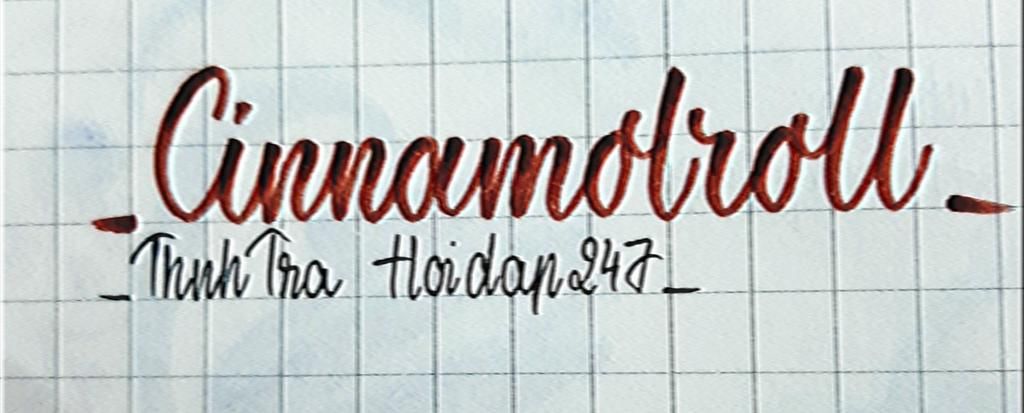 _Cinnamolroll_
_ThnhTra Hoidap247_